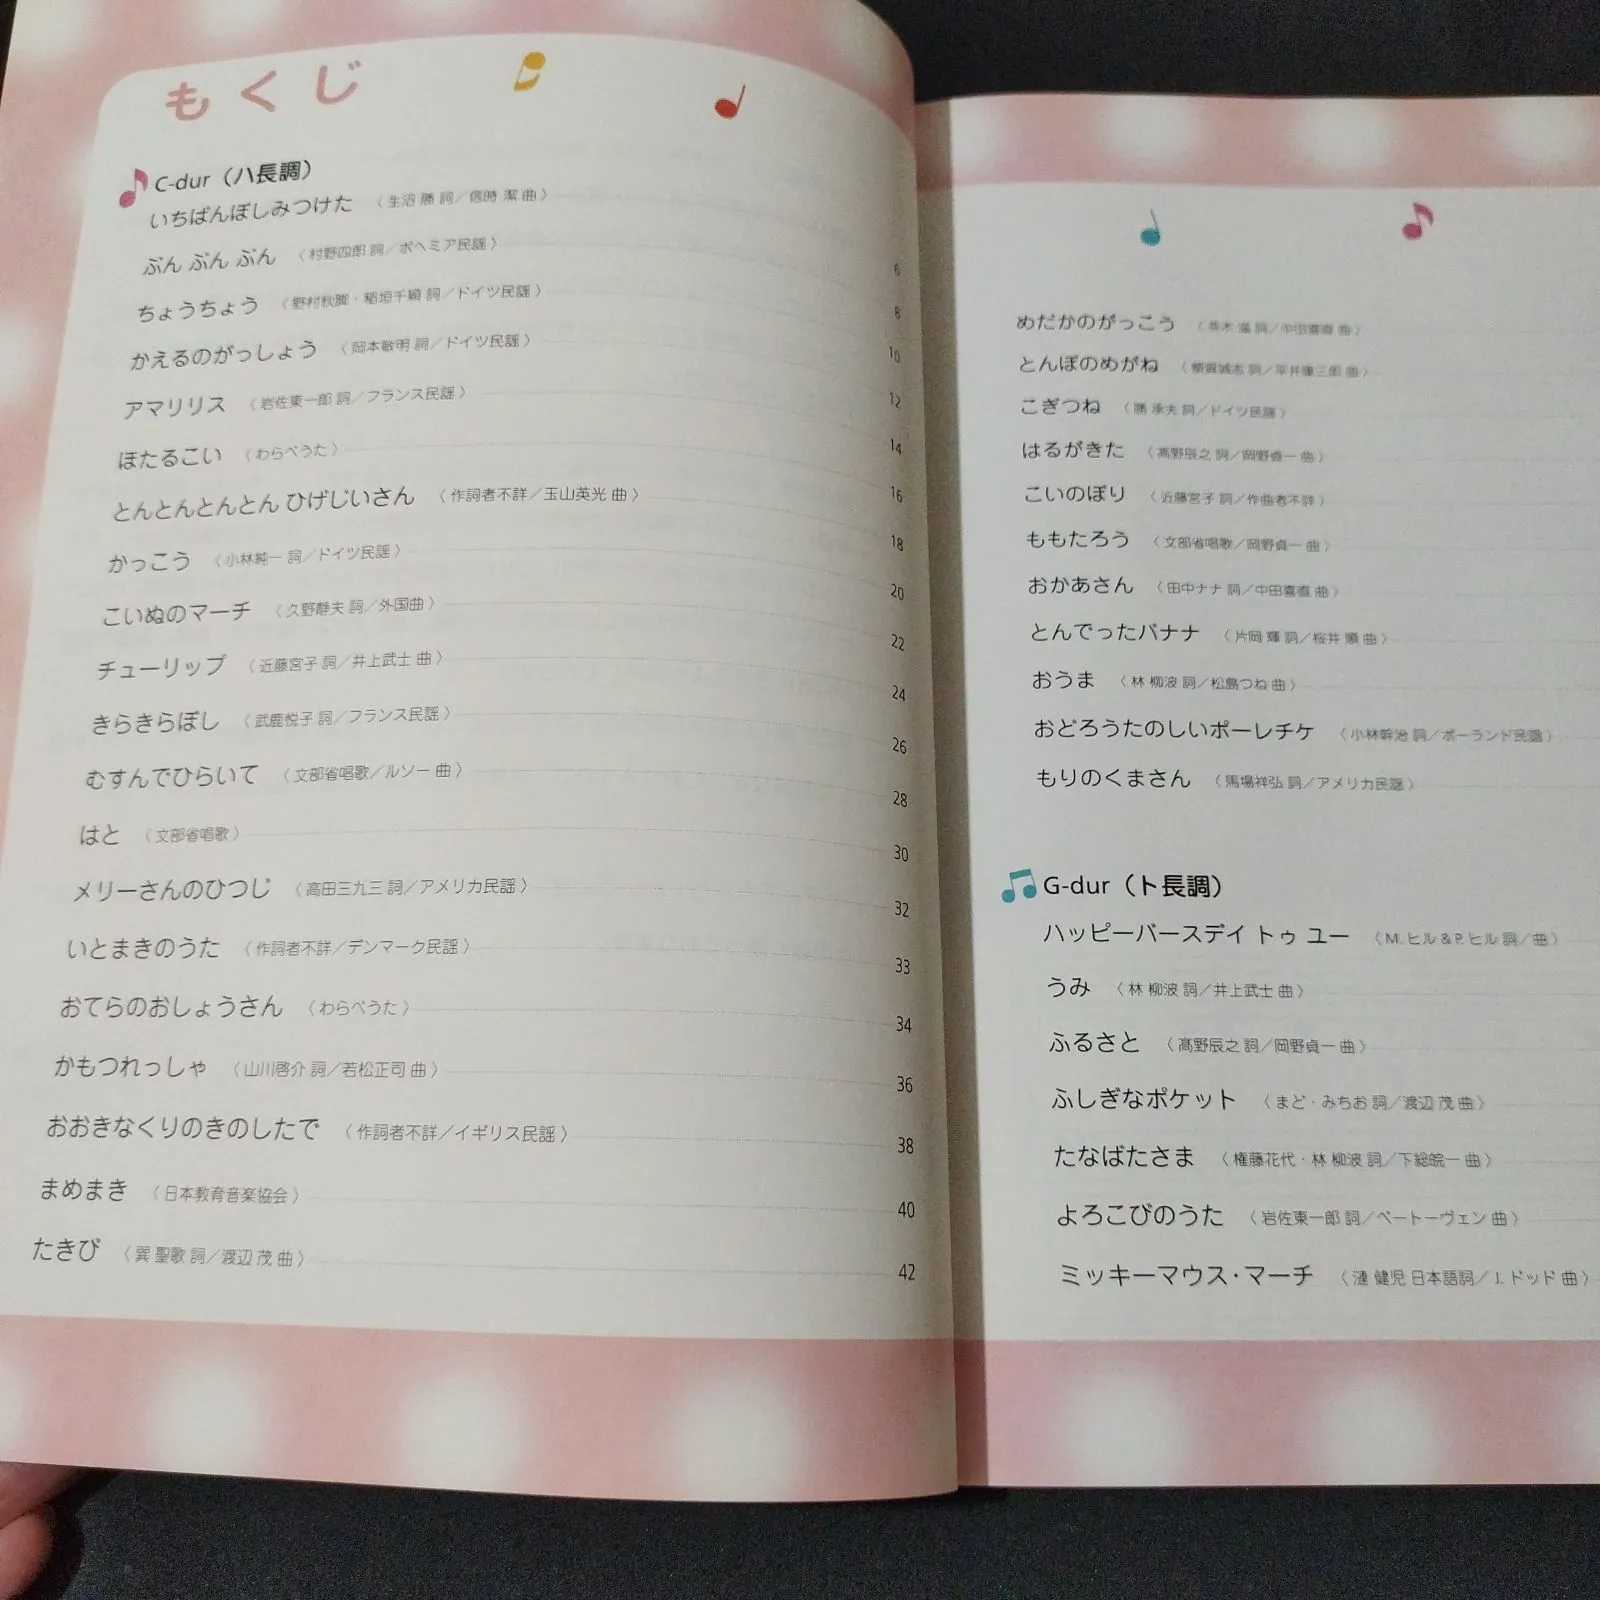 もくじ
C-dur（ハ長調）
いちばんぼしみつけた 〈生沼 勝 詞／信時 潔 曲〉 6
ぶん ぶん ぶん 〈村野四郎 詞／ボヘミア民謡〉 8
ちょうちょう 〈野村秋脚・稲垣千穎 詞／ドイツ民謡〉 10
かえるのがっしょう 〈岡本敏明 詞／ドイツ民謡〉 12
アマリリス 〈岩佐東一郎 詞／フランス民謡〉 14
ほたるこい 〈わらべうた〉 16
とんとんとんとん ひげじいさん 〈作詞者不詳／玉山英光 曲〉 18
かっこう 〈小林純一 詞／ドイツ民謡〉 20
こいぬのマーチ 〈久野静夫 詞／外国曲〉 22
チューリップ 〈近藤宮子 詞／井上武士 曲〉 24
きらきらぼし 〈武鹿悦子 詞／フランス民謡〉 26
むすんでひらいて 〈文部省唱歌／ルソー 曲〉 28
はと 〈文部省唱歌〉 30
メリーさんのひつじ 〈高田三九三 詞／アメリカ民謡〉 32
いとまきのうた 〈作詞者不詳／デンマーク民謡〉 33
おてらのおしょうさん 〈わらべうた〉 34
かもつれっしゃ 〈山川啓介 詞／若松正司 曲〉 36
おおきなくりのきのしたで 〈作詞者不詳／イギリス民謡〉 38
まめまき 〈日本教育音楽協会〉 40
たきび 〈巽 聖歌 詞／渡辺 茂 曲〉 42
めだかのがっこう 〈茶木 滋 詞／中田喜直 曲〉
とんぼのめがね 〈額賀誠志 詞／平井康三郎 曲〉
こぎつね 〈勝 承夫 詞／ドイツ民謡〉
はるがきた 〈高野辰之 詞／岡野貞一 曲〉
こいのぼり 〈近藤宮子 詞／作曲者不詳〉
ももたろう 〈文部省唱歌／岡野貞一 曲〉
おかあさん 〈田中ナナ 詞／中田喜直 曲〉
とんでったバナナ 〈片岡 輝 詞／桜井 順 曲〉
おうま 〈林 柳波 詞／松島つね 曲〉
おどろうたのしいポーレチケ 〈小林幹治 詞／ポーランド民謡〉
もりのくまさん 〈馬場祥弘 詞／アメリカ民謡〉
G-dur（ト長調）
ハッピーバースデイ トゥ ユー 〈M. ヒル & P. ヒル 詞／曲〉
うみ 〈林 柳波 詞／井上武士 曲〉
ふるさと 〈髙野辰之 詞／岡野貞一 曲〉
ふしぎなポケット 〈まど・みちお 詞／渡辺 茂 曲〉
たなばたさま 〈権藤花代・林 柳波 詞／下総皖一 曲〉
よろこびのうた 〈岩佐東一郎 詞／ベートーヴェン 曲〉
ミッキーマウス・マーチ 〈漣 健児 日本語詞／J. ドッド 曲〉